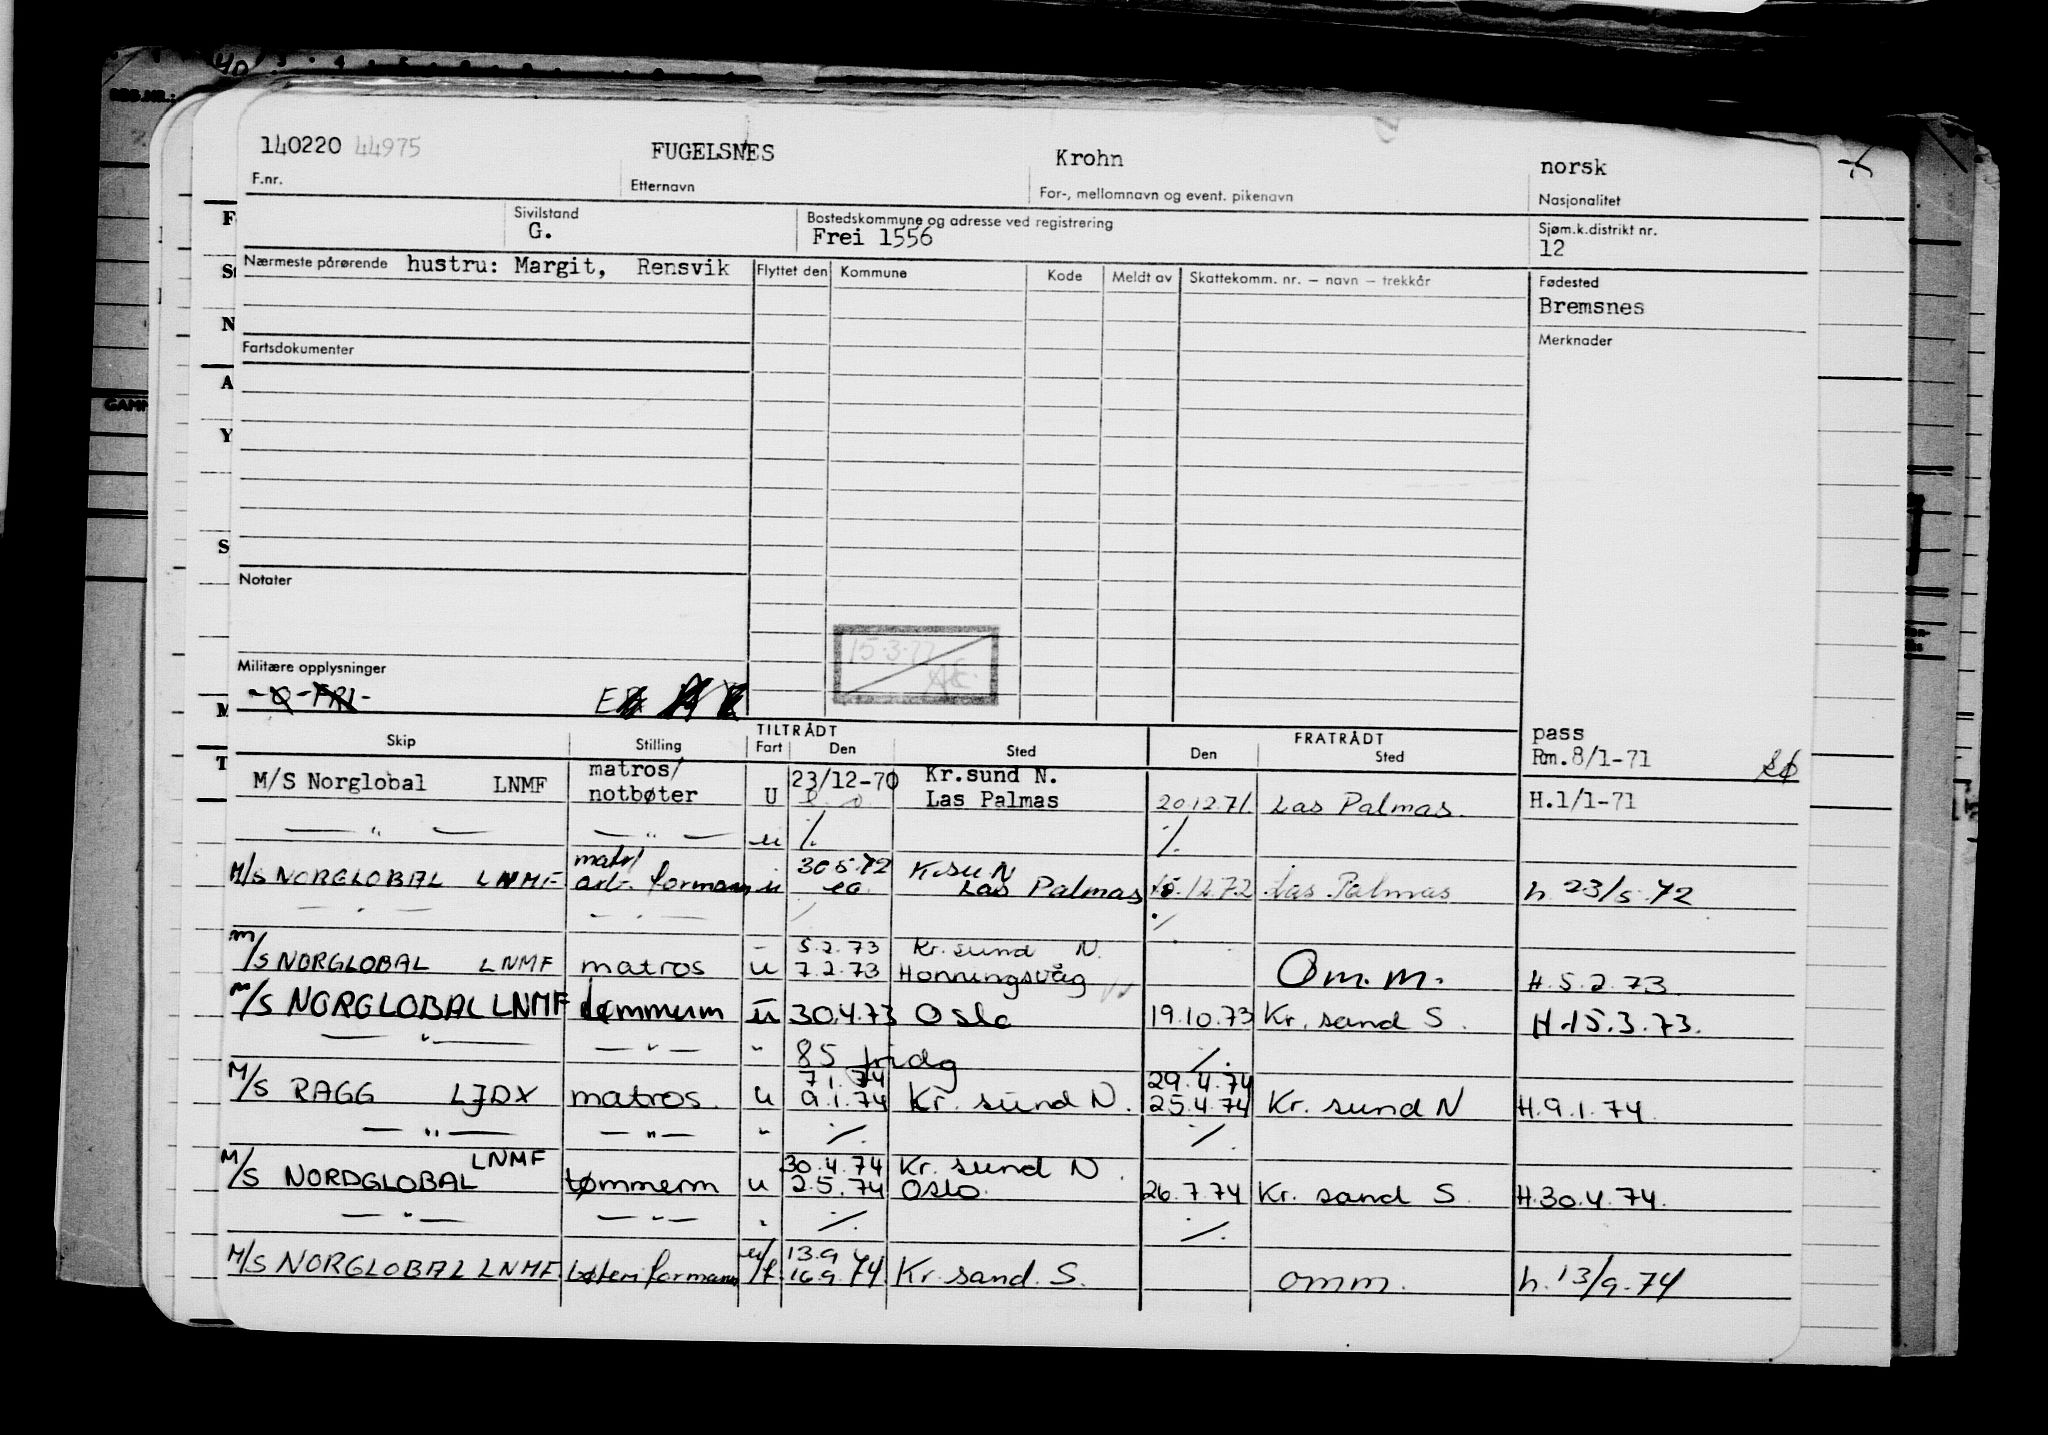 140220 44975 FUGELSNES Krohn norsk
F.nr. Etternavn For-, mellomnavn og event. pikenavn Nasjonalitet
Sivilstand Bostedskommune og adresse ved registrering Sjøm.k.distrikt nr.
G. Frei 1556 12
Nærmeste pårørende hustru: Margit, Rensvik Flyttet den Kommune Kode Meldt av Skattekomm. nr. – navn – trekkår Fødested
Bremsnes
Fartsdokumenter Merknader
Notater
15.3.77
Militære opplysninger
TILTRÅDT FRATRÅDT pass
Skip Stilling Fart Den Sted Den Sted Rm.8/1-71
M/S Norglobal LNMF matros/ 23/12-70 Kr.sund N.
notbøter U Las Palmas 20.12.71. Las Palmas. H.1/1-71
— " — — " — u ./. ./.
matr/ 30.5.72 K.su N
M/S NORGLOBAL LNMF arb. formann u Las Palmas 15.12.72 Las Palmas h. 23/5.72
— " — — " — ./. ./.
5.2.73 Kr. sund N.
M/S NORGLOBAL LNMF matros u 7.2.73 Honningsvåg Om.m. H.5.2.73
M/S NORGLOBAL LNMF tømmerm u 30.4.73 Oslo 19.10.73 Kr. sand S. H.15.3.73.
— " — — " — " 85 fridg ./.
7.1.74 29.4.74
M/S RAGG LJDX matros. u 9.1.74 Kr. sund N. 25.4.74 Kr. sund N H.9.1.74.
— " — — " — " ./. ./.
LNMF 30.4.74 Kr. sund N.
M/S NORDGLOBAL tømmerm u 2.5.74 Oslo. 26.7.74 Kr. sand S. H.30.4.74.
— " — — " — " ./. ./.
13.9
M/S NORGLOBAL LNMF bøterformann u/f 16.9.74 Kr. sand. S. omm. h. 13/9.74